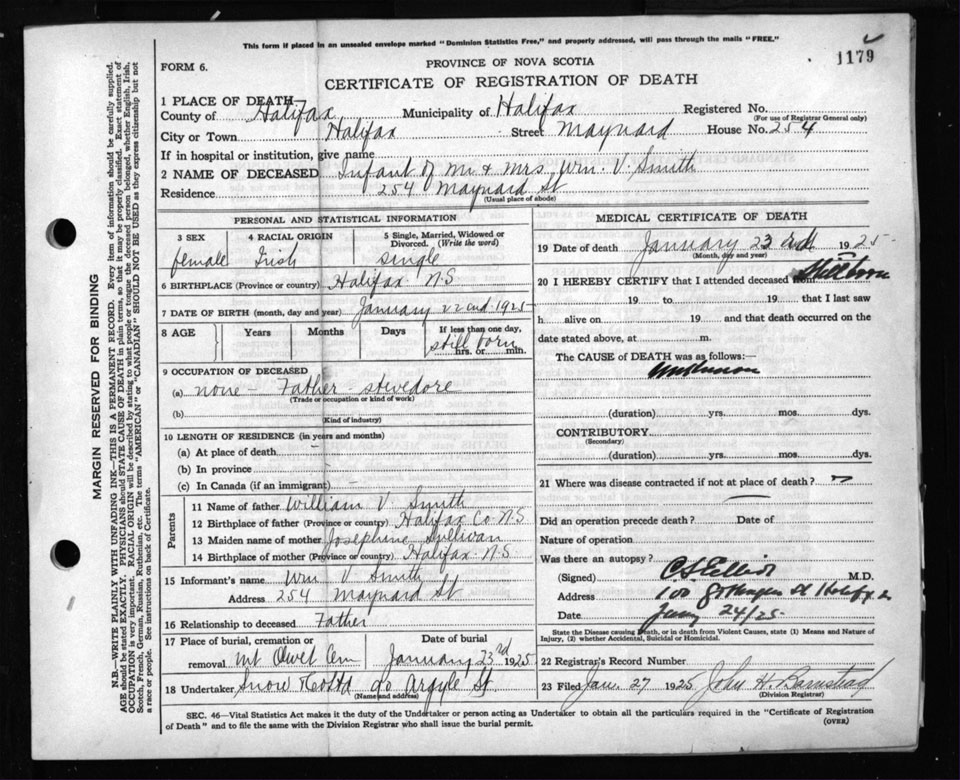 This form if placed in an unsealed envelope marked "Dominion Statistics Free," and properly addressed, will pass through the mails "FREE."
1179
FORM 6.
PROVINCE OF NOVA SCOTIA
CERTIFICATE OF REGISTRATION OF DEATH
1 PLACE OF DEATH
County of Halifax Municipality of Halifax Registered No.
(For use of Registrar General only)
City or Town Halifax Street Maynard House No. 254
If in hospital or institution, give name
2 NAME OF DECEASED Infant of Mr & Mrs Wm. V. Smith
Residence 254 Maynard St
(Usual place of abode)
PERSONAL AND STATISTICAL INFORMATION
3 SEX 4 RACIAL ORIGIN 5 Single, Married, Widowed or Divorced. (Write the word)
female Irish single
6 BIRTHPLACE (Province or country) Halifax N.S
7 DATE OF BIRTH (month, day and year) January 22nd 1925
8 AGE Years Months Days If less than one day,
still born
hrs. or min.
9 OCCUPATION OF DECEASED
(a) none - Father - stevedore
(Trade or occupation or kind of work)
(b)
(Kind of industry)
10 LENGTH OF RESIDENCE (in years and months)
(a) At place of death
(b) In province
(c) In Canada (if an immigrant)
Parents
11 Name of father William V Smith
12 Birthplace of father (Province or country) Halifax Co N.S
13 Maiden name of mother Josephine Sullivan
14 Birthplace of mother (Province or country) Halifax N.S
15 Informant's name Wm V Smith
Address 254 Maynard St
16 Relationship to deceased Father
17 Place of burial, cremation or removal Mt Olivet Cem
Date of burial January 23rd 1925
18 Undertaker Snow & Co Ltd 90 Argyle St.
(Name and address)
MEDICAL CERTIFICATE OF DEATH
19 Date of death January 23rd 1925
(Month, day and year)
20 I HEREBY CERTIFY that I attended deceased from Stillborn
19 to 19 that I last saw
h alive on 19 and that death occurred on the
date stated above, at m.
The CAUSE of DEATH was as follows:—
(duration) yrs. mos. dys.
CONTRIBUTORY
(Secondary)
(duration) yrs. mos. dys.
21 Where was disease contracted if not at place of death?
Did an operation precede death? Date of
Nature of operation
Was there an autopsy?
(Signed) M.D.
Address 100 Gottingen St Halifax
Date Jany 24/25
State the Disease causing Death, or in death from Violent Causes, state (1) Means and Nature of Injury, (2) whether Accidental, Suicidal or Homicidal.
22 Registrar's Record Number
23 Filed Jan. 27 1925 John H. Barnstead
(Division Registrar)
SEC. 46—Vital Statistics Act makes it the duty of the Undertaker or person acting as Undertaker to obtain all the particulars required in the "Certificate of Registration
of Death" and to file the same with the Division Registrar who shall issue the burial permit. (OVER)
MARGIN RESERVED FOR BINDING
N.B.—WRITE PLAINLY WITH UNFADING INK—THIS IS A PERMANENT RECORD. Every item of information should be carefully supplied.
AGE should be stated EXACTLY. PHYSICIANS should STATE CAUSE OF DEATH in plain terms, so that it may be properly classified. Exact statement of
OCCUPATION is very important. RACIAL ORIGIN will be described by stating to what people or tongue the deceased person belonged, whether English, Irish,
Scotch, French, German, Russian, Ruthenian, etc. The terms "AMERICAN" or "CANADIAN" SHOULD NOT BE USED as they express citizenship but not
a race or people. See instructions on back of Certificate.